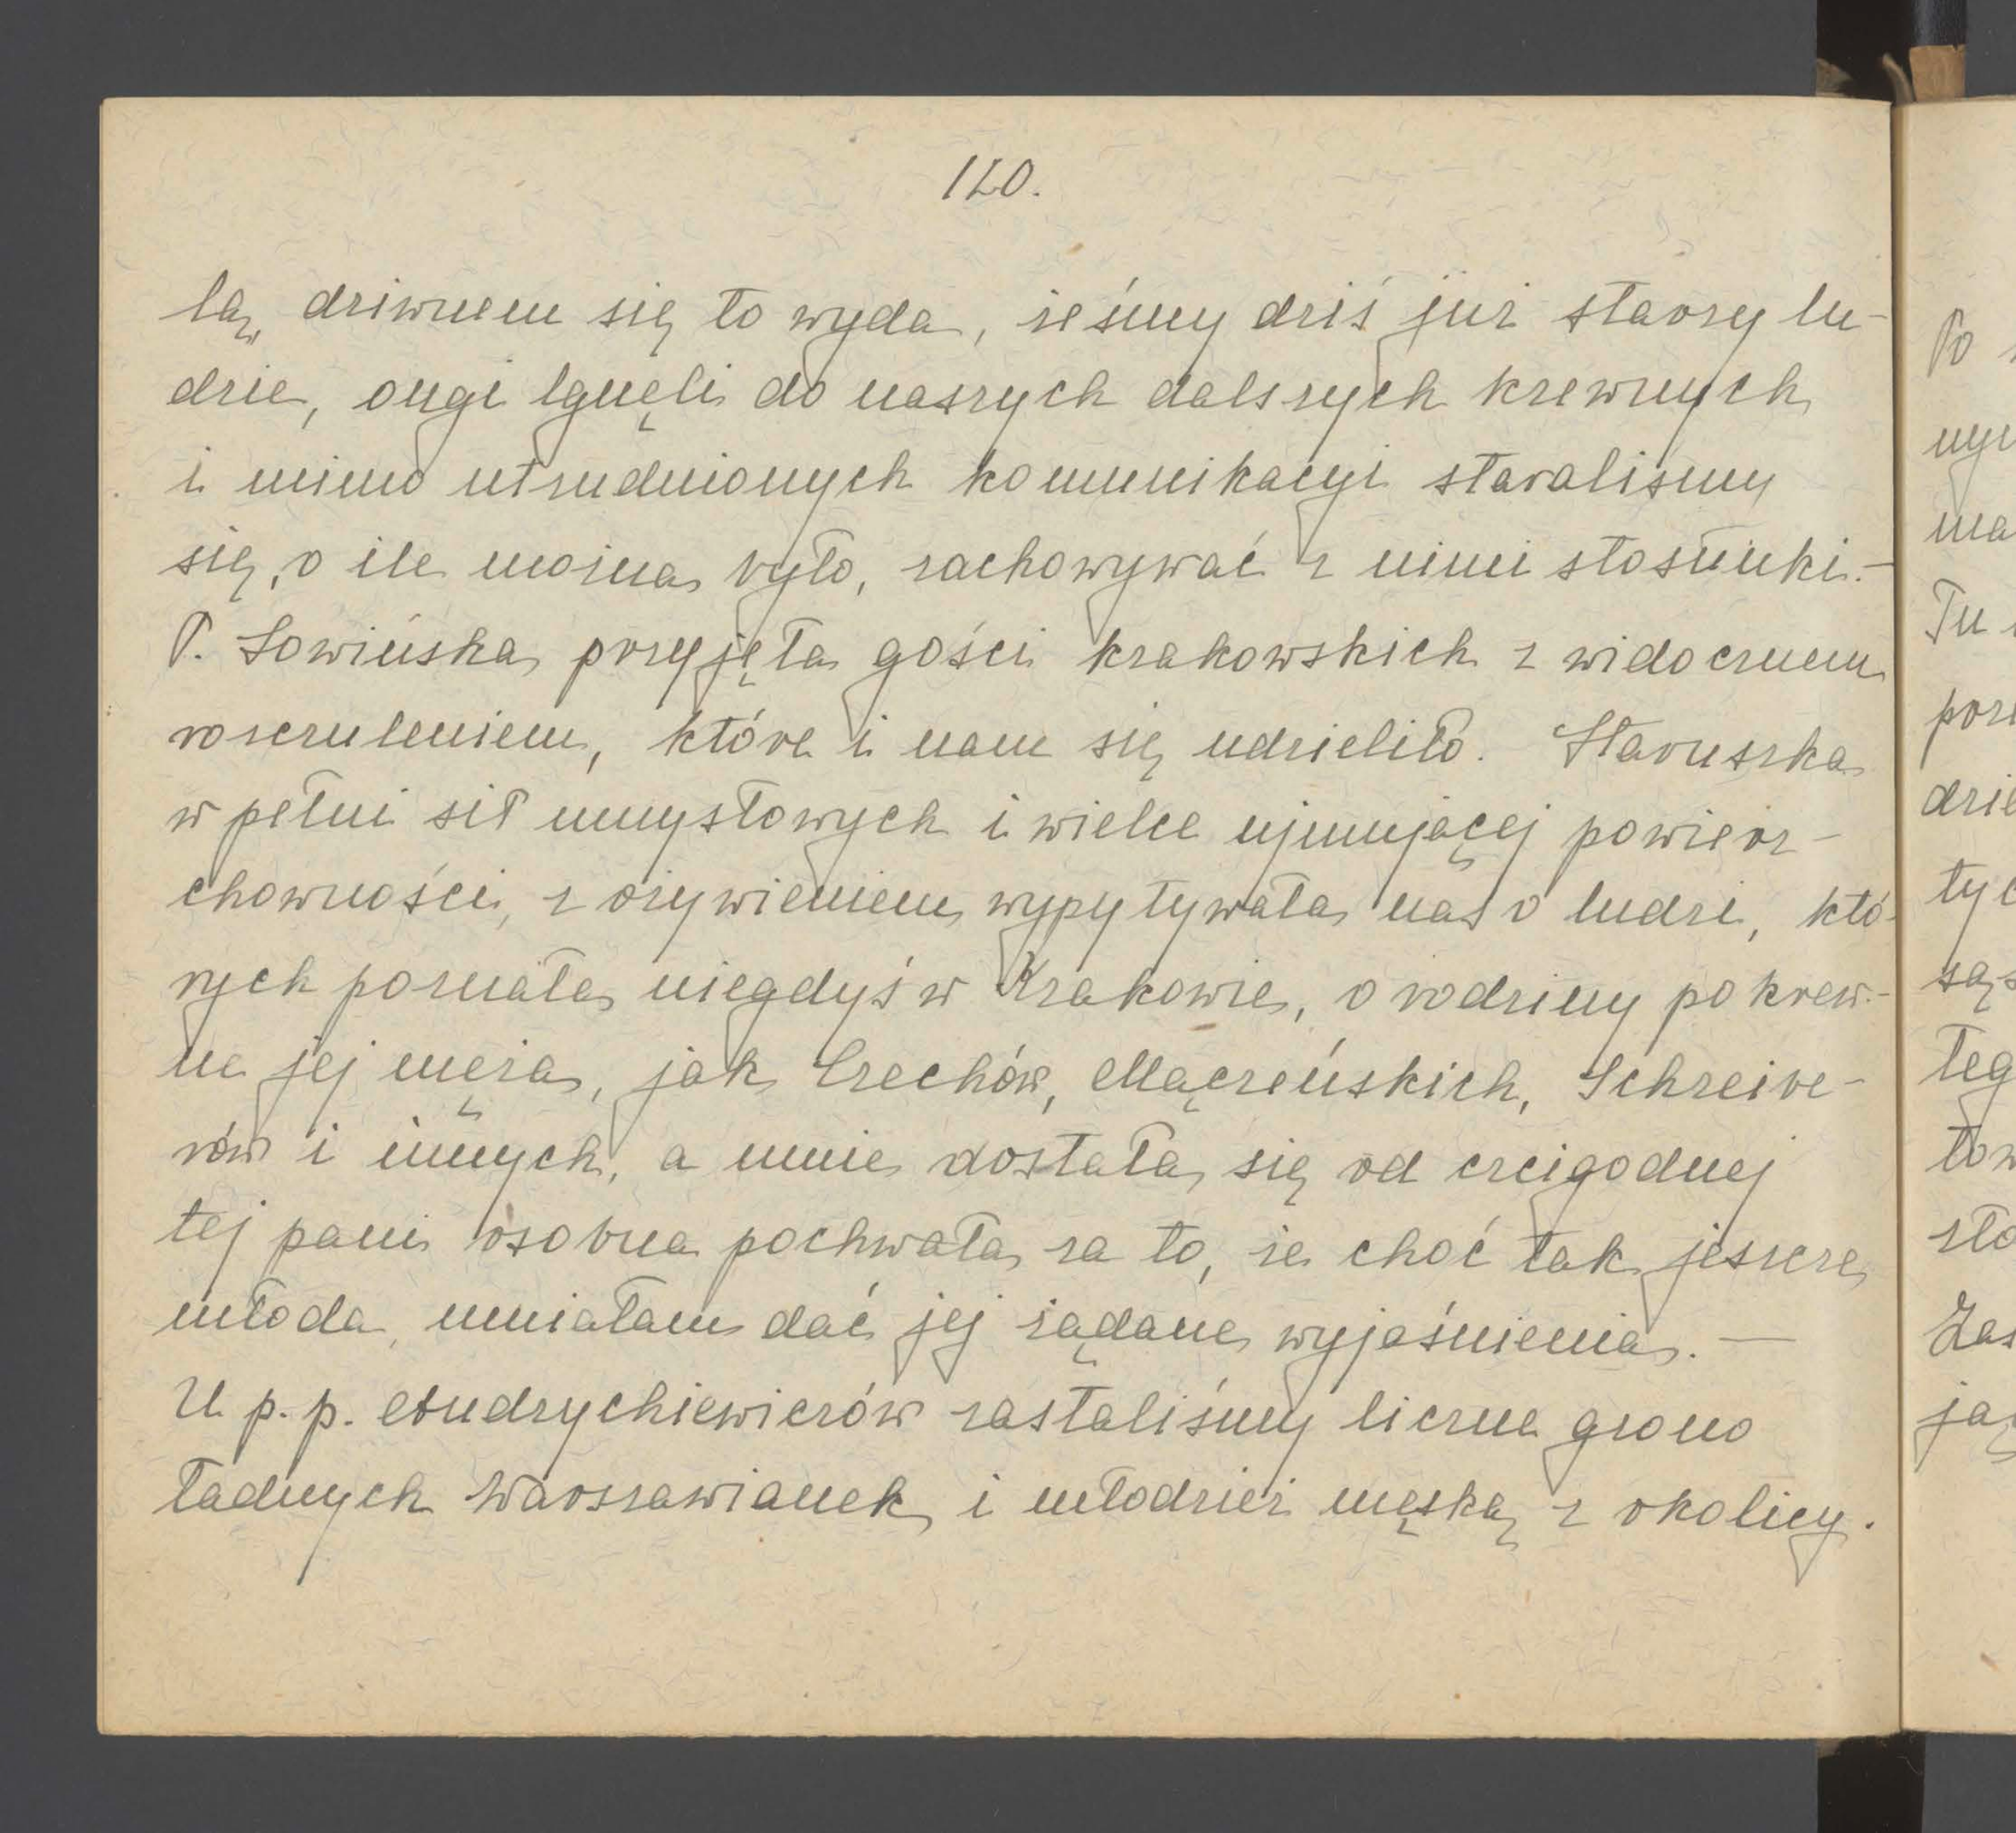 120.
lą, dziwnem się to wyda, żeśmy dziś już starzy lu-
dzie, ongi lgnęli do naszych dalszych krewnych
i mimo utrudnionych komunikacyi staraliśmy
się, o ile można było, zachowywać z nimi stosunki.-
P. Sowińska przyjęła gości krakowskich z widocznem
rozczuleniem, które i nam się udzieliło. Staruszka
w pełni sił umysłowych i wielce ujmującej powierz-
chowności, z ożywieniem wypytywała nas o ludzi, któ-
rych poznała niegdyś w Krakowie, o rodziny pokrew-
ne jej męża, jak Czechów, Mączeńskich, Schreibe-
rów i innych, a mnie dostała się od czcigodnej
tej pani osobna pochwała za to, że choć tak jeszcze
młoda, umiałam dać jej żądane wyjaśnienia. —
U p. p. Andrychiewiczów zastaliśmy liczne grono
ładnych Warszawianek i młodzież męską z okolicy.
Po
ma
Tu
dzie
tyc
tow
Zas